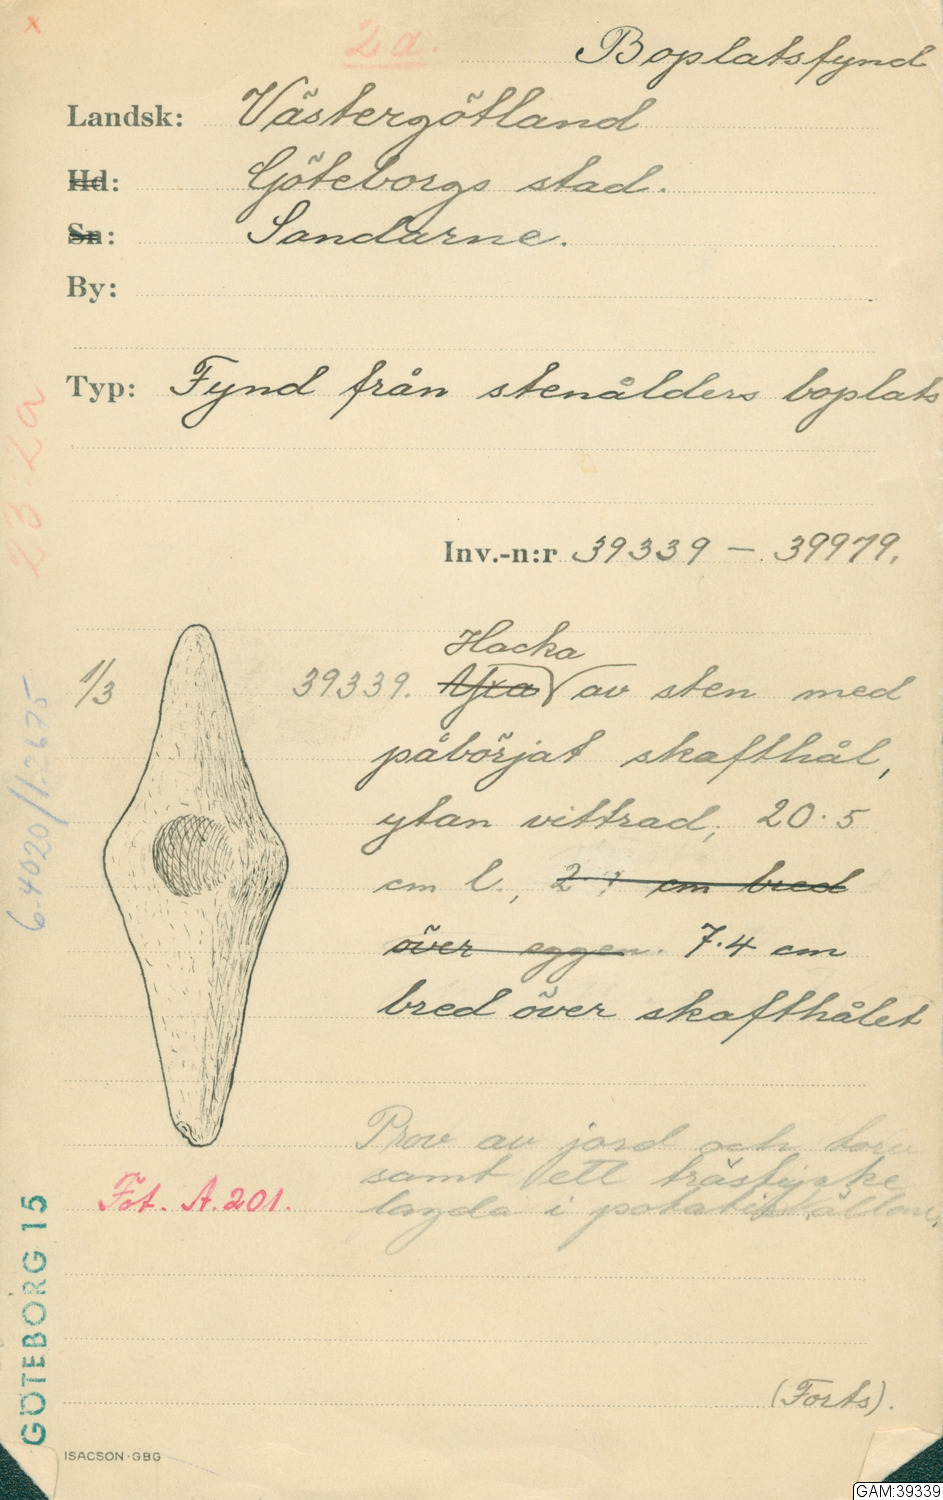 x
2a.
Boplatsfynd
Landsk: Västergötland
Hd: Göteborgs stad.
Sn: Sandarne.
By:
Typ: Fynd från stenålders boplats
23:2a
Inv.-n:r 39339 – 39979.
Hacka
1/3
39339. Yxa av sten med
påbörjat skafthål,
ytan vittrad, 20.5
cm l., 2.? cm bred
över eggen. 7.4 cm
bred över skafthålet
6.4020/1.2675
Prov av jord och torv
samt ett trästycke
lagda i potatiskällaren
Fot. A. 201.
GÖTEBORG 15
(Forts).
ISACSON·GBG
GAM:39339